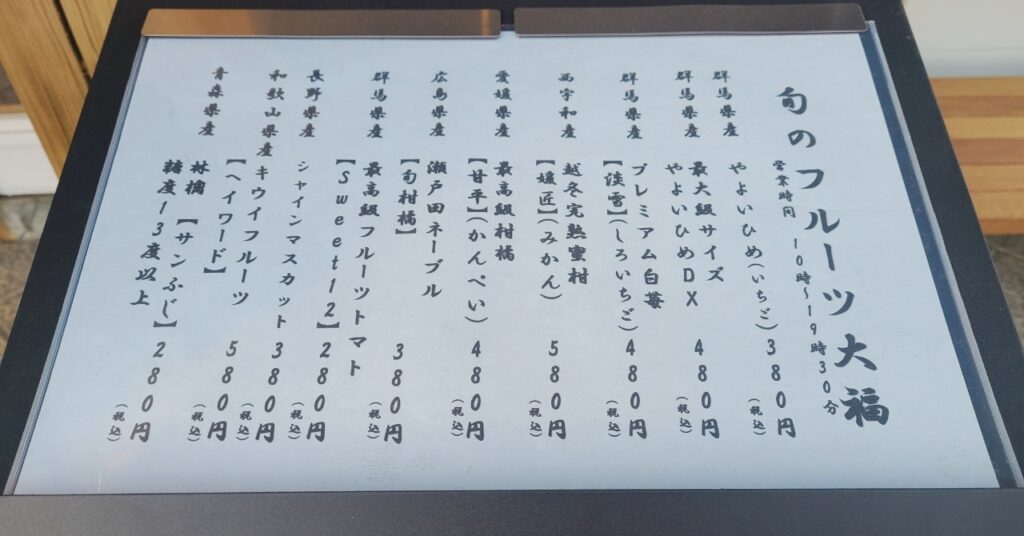 旬のフルーツ大福
営業時間 10時〜19時30分
群馬県産 やよいひめ(いちご) 380円(税込)
群馬県産 最大級サイズ
やよいひめDX 480円(税込)
群馬県産 プレミアム白苺
【淡雪】(しろいちご) 480円(税込)
西宇和産 越冬完熟蜜柑
【媛匠】(みかん) 580円(税込)
愛媛県産 最高級柑橘
【甘平】(かんぺい) 480円(税込)
広島県産 瀬戸田ネーブル
【旬柑橘】 380円(税込)
群馬県産 最高級フルーツトマト
【Sweet12】 280円(税込)
長野県産 シャインマスカット 380円(税込)
和歌山県産 キウイフルーツ
【ヘイワード】 580円(税込)
青森県産 林檎【サンふじ】
糖度13度以上 280円(税込)